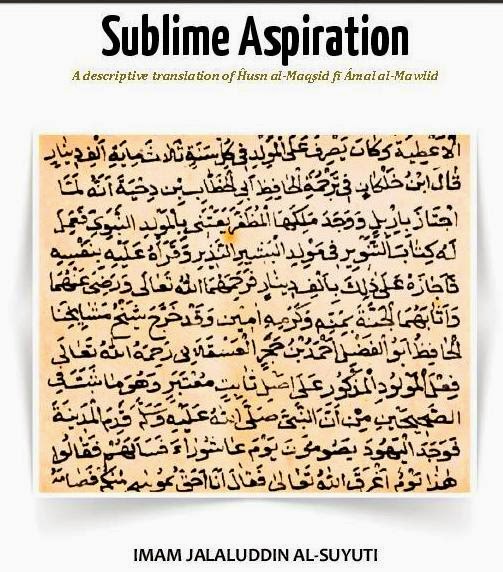 Sublime Aspiration
A descriptive translation of Ĥusn al-Maqşid fī Ámal al-Mawlid
الاعطية وكان يصرف على المولد في كل سنة ثلاثماية الف دينار
قال ابن خلكان في ترجمة الحافظ ابي الخطاب بن دحية انه لما
اجتاز باربل ووجد ملكها المظفر يعتني بالمولد النبوي فعمل
له كتاب التنوير في مولد البشير النذير وقراه عليه بنفسه
فاجازه على ذلك بالف دينار فرحمهما الله تعالى ورضي عنهما
واثابهما الجنة بمنه وكرمه امين وقد خرج شيخ مشايخنا
الحافظ ابو الفضل احمد بن حجر العسقلاني رحمه الله تعالى
فعل المولود المذكور على اصل ثابت معتبر وهو ما ثبت في
الصحيحين من ان النبي صلى الله عليه وسلم قدم المدينة
فوجد اليهود يصومون يوم عاشوراء فسالهم فقالوا
هذا يوم اغرق الله تعالى فقال انا احق بموسى منكم فصامه
IMAM JALALUDDIN AL-SUYUTI